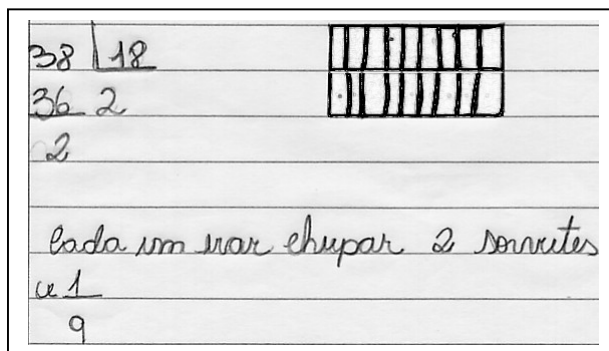 38 | 18
36 2
2
Cada um irar chupar 2 sorvetes
e 1
9